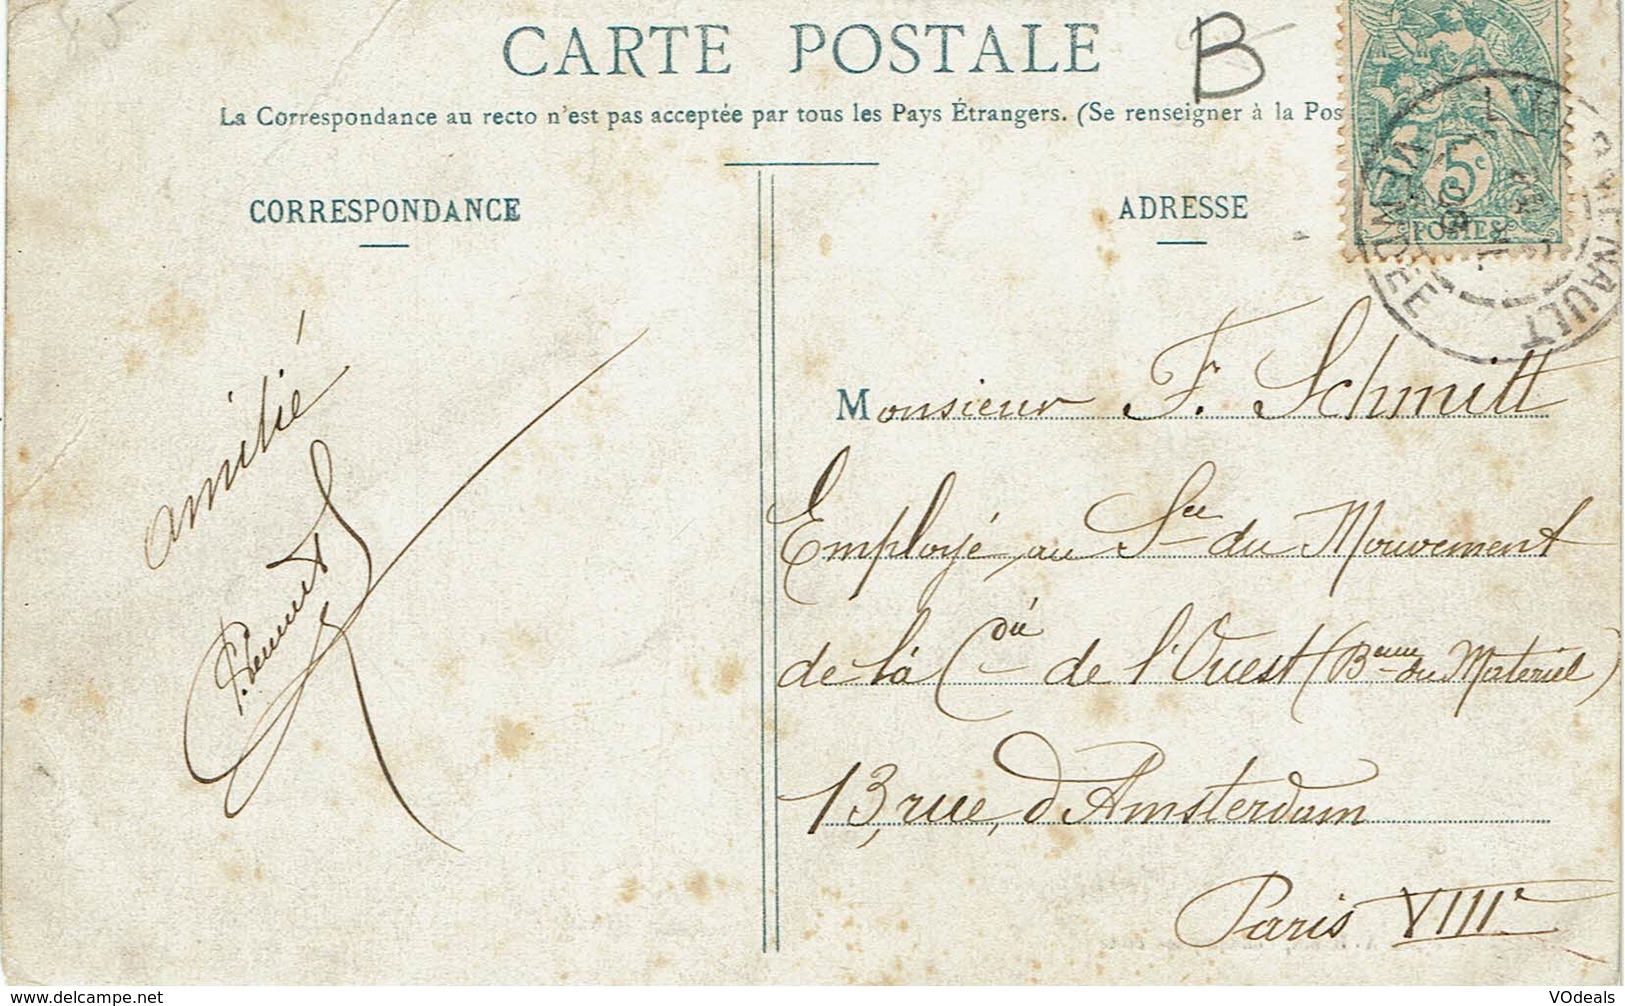 85
CARTE POSTALE
B
La Correspondance au recto n'est pas acceptée par tous les Pays Étrangers. (Se renseigner à la Pos
CORRESPONDANCE
ADRESSE
5c
POSTES
VENDÉE
amitié
Monsieur F. Schmitt
Employé au Sce du Mouvement
de la Cie de l'Ouest (Beau du Matériel)
13, rue, d'Amsterdam
Paris VIIIe
www.delcampe.net
VOdeals